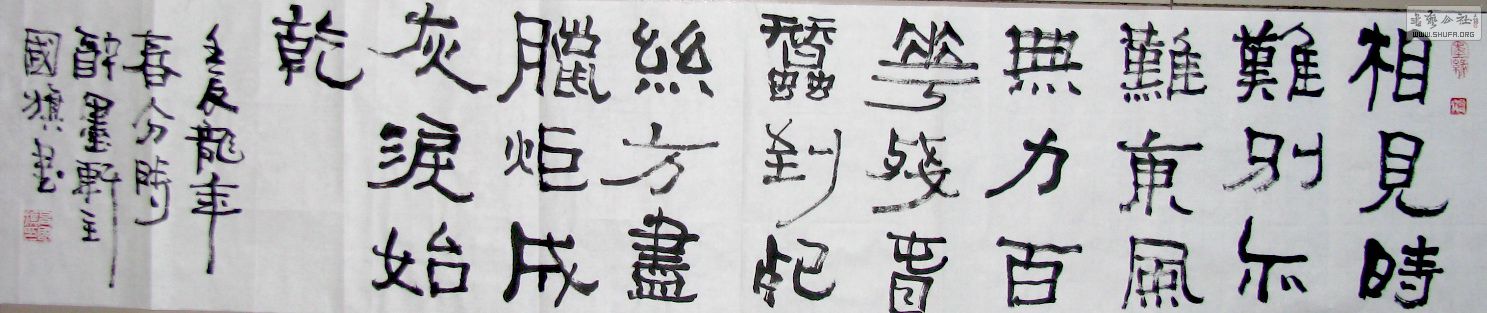 書藝公社
WWW.SHUFA.ORG
相見時
難別亦
難東風
無力百
華殘旾
蠶到死
絲方盡
臘炬成
灰淚始
乾
壬辰龍年
春分時
醉墨軒主
國書